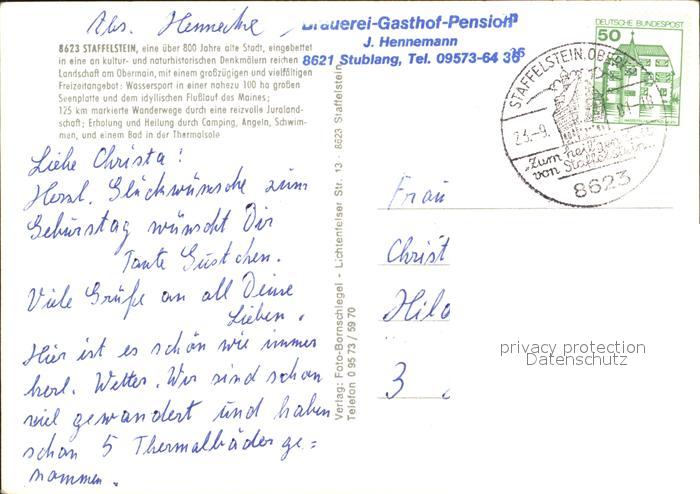 Abs. Hennecke,
Brauerei-Gasthof-Pension
J. Hennemann
8621 Stublang, Tel. 09573-64 36
8623 STAFFELSTEIN, eine über 800 Jahre alte Stadt, eingebettet
in eine an kultur- und naturhistorischen Denkmälern reichen
Landschaft am Obermain, mit einem großzügigen und vielfältigen
Freizeitangebot: Wassersport in einer nahezu 100 ha großen
Seenplatte und dem idyllischen Flußlauf des Maines;
125 km markierte Wanderwege durch eine reizvolle Juraland-
schaft; Erholung und Heilung durch Camping, Angeln, Schwim-
men, und einem Bad in der Thermalsole
Liebe Christa!
Herzl. Glückwünsche zum
Geburtstag wünscht Dir
Tante Gustchen.
Viele Grüße an all Deine
Lieben.
Hier ist es schön wie immer
herl. Wetter. Wir sind schon
viel gewandert und haben
schon 5 Thermalbäder ge=
nommen.
Verlag: Foto-Bornschlegel - Lichtenfelser Str. 13 - 8623 Staffelstein
Telefon 0 95 73 / 59 70
DEUTSCHE BUNDESPOST
50
STAFFELSTEIN, OBERFR
23.-9.
"Zum heiligen Veit
von Staffelstein"
8623
Frau
Christ
Hil
3
privacy protection
Datenschutz